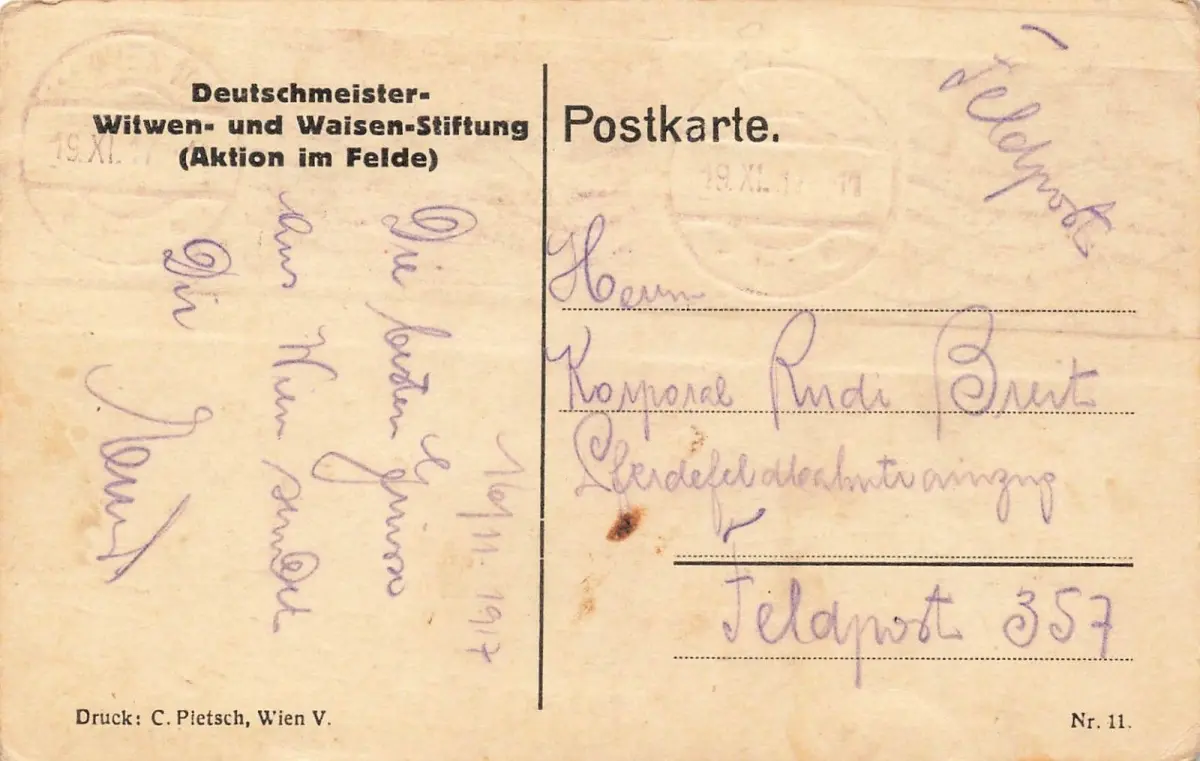 Deutschmeister-
Witwen- und Waisen-Stiftung
(Aktion im Felde)
16/11. 1917
Die besten Grüsse
aus Wien sendet
Dir
Postkarte.
Feldpost
19. XI. 17
19. XI. 17
Herrn
Korporal Rudi Breit
Pferdefeldbahntrainzug
Feldpost 357
Druck: C. Pietsch, Wien V.
Nr. 11.